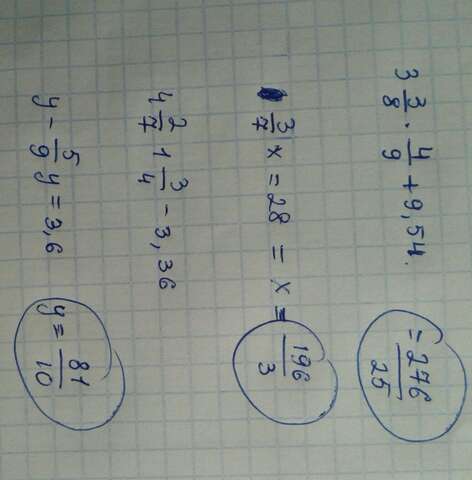 3 3/8 · 4/9 + 9,54. = 276/25
3/7 x = 28 = x = 196/3
4 2/7 1 3/4 - 3,36
y - 5/9 y = 3,6 y = 81/10